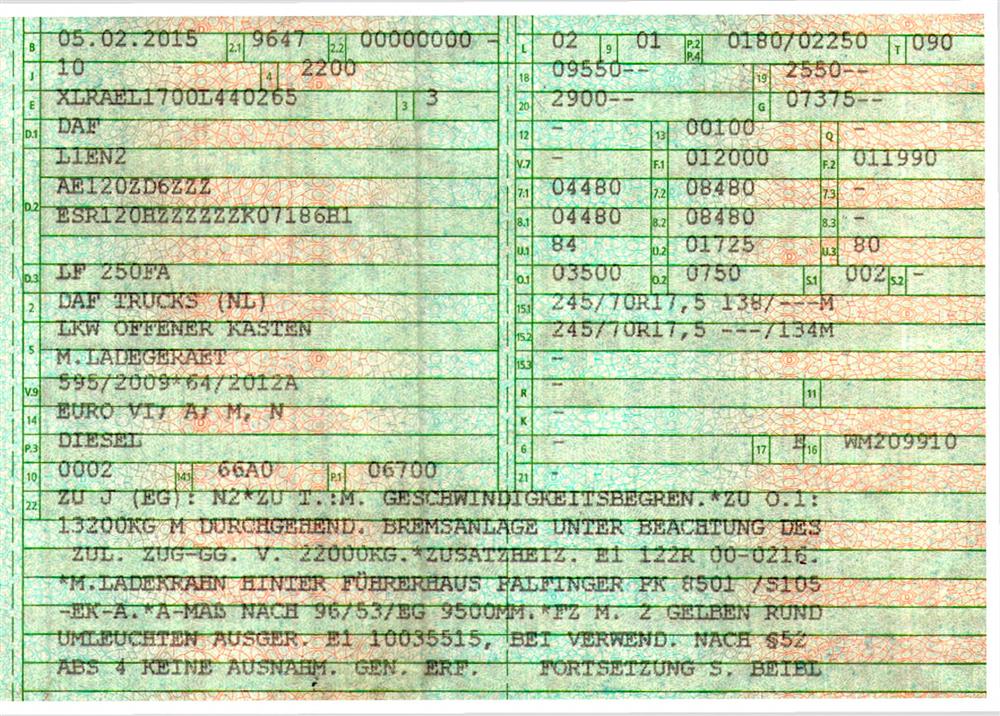 B 05.02.2015 2.1 9647 2.2 00000000 -
J 10 4 2200
E XLRAEL1700L440265 3 3
D.1 DAF
L1EN2
D.2 AE120ZD6ZZZ
ESR120HZZZZZZK07186H1
D.3 LF 250FA
2 DAF TRUCKS (NL)
LKW OFFENER KASTEN
5 M.LADEGERAET
V.9 595/2009*64/2012A
14 EURO VI; A; M, N
P.3 DIESEL
10 0002 14.1 66A0 P.1 06700
L 02 9 01 P.2 P.4 0180/02250 T 090
18 09550-- 19 2550--
20 2900-- G 07375--
12 - 13 00100 Q -
V.7 - F.1 012000 F.2 011990
7.1 04480 7.2 08480 7.3 -
8.1 04480 8.2 08480 8.3 -
U.1 84 U.2 01725 U.3 80
O.1 03500 O.2 0750 S.1 002 S.2 -
15.1 245/70R17,5 138/---M
15.2 245/70R17,5 ---/134M
15.3 -
R - 11
K -
6 - 17 E 16 WM209910
21 -
22 ZU J (EG): N2*ZU T.:M. GESCHWINDIGKEITSBEGREN.*ZU O.1:
13200KG M DURCHGEHEND. BREMSANLAGE UNTER BEACHTUNG DES
ZUL. ZUG-GG. V. 22000KG.*ZUSATZHEIZ. E1 122R 00-0216.
*M.LADEKRAHN HINTER FÜHRERHAUS PALFINGER PK 8501 /S105
-EK-A.*A-MAß NACH 96/53/EG 9500MM.*FZ M. 2 GELBEN RUND
UMLEUCHTEN AUSGER. E1 10035515, BEI VERWEND. NACH §52
ABS 4 KEINE AUSNAHM. GEN. ERF. FORTSETZUNG S. BEIBL